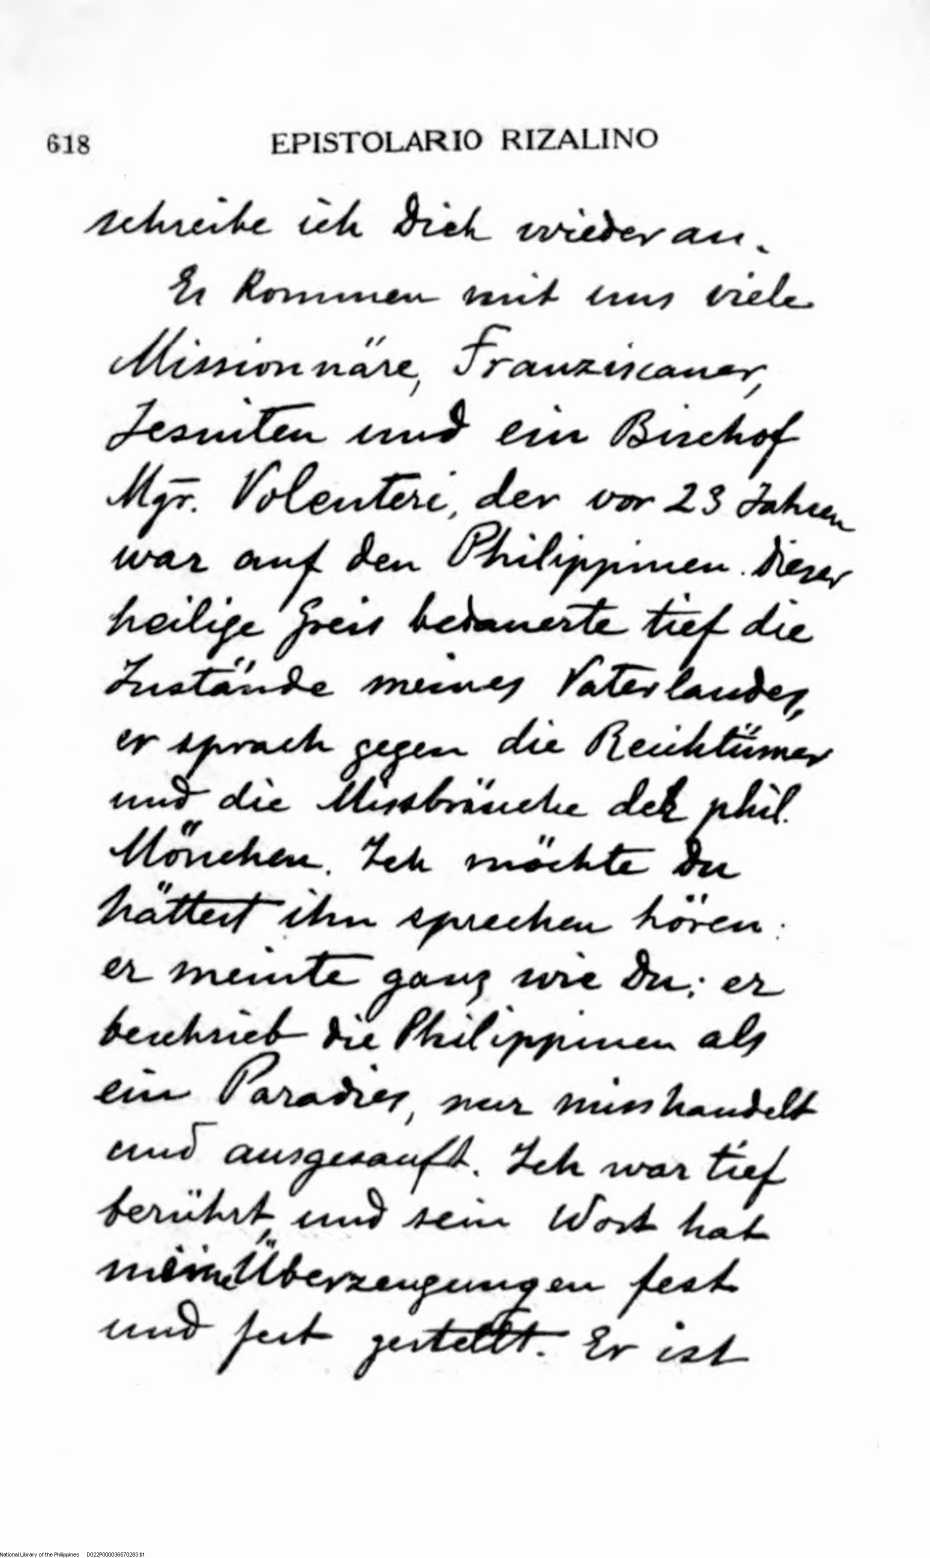 618 EPISTOLARIO RIZALINO
schreibe ich Dich wieder an.
Es kommen mit uns viele
Missionnäre, Franziscaner,
Jesuiten und ein Bischof
Mgr. Volenteri, der vor 23 Jahren
war auf den Philippinen. Dieser
heilige Greis bedauerte tief die
Zustände meines Vaterlandes,
er sprach gegen die Reichtümer
und die Missbräuche der phil.
Mönchen. Ich möchte Du
hättest ihn sprechen hören:
er meinte ganz wie Du; er
beschrieb die Philippinen als
ein Paradies, nur misshandelt
und ausgesauft. Ich war tief
berührt, und sein Wort hat
meine Überzeugungen fest
und fest gestellt. Er ist
National Library of the Philippines